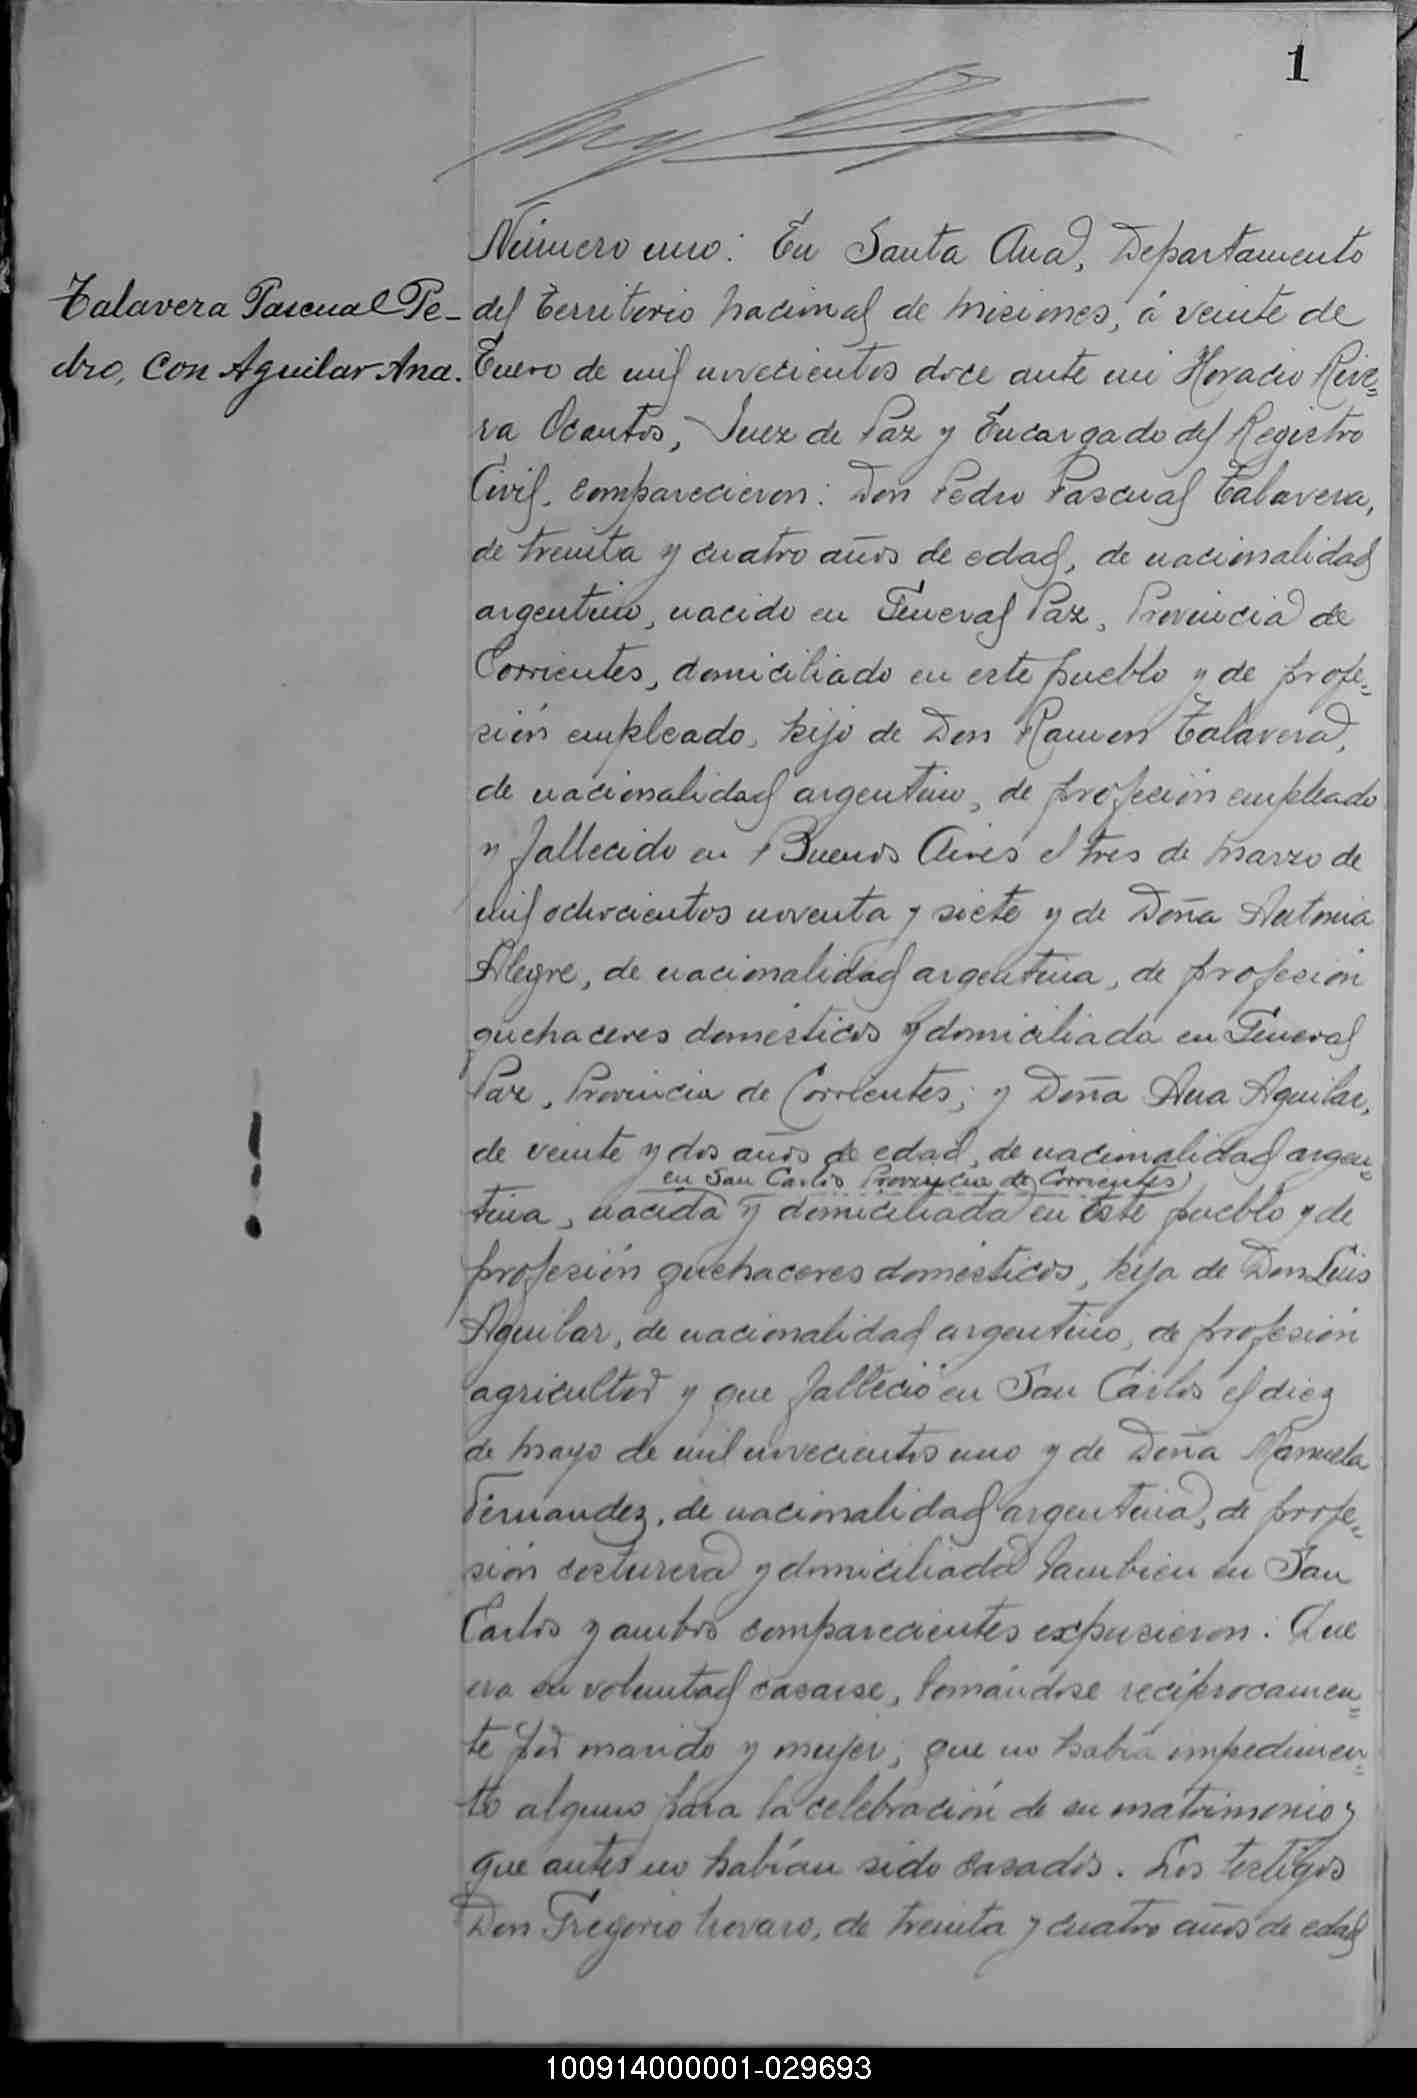 1
Talavera Pascual Pe-
dro, con Aguilar Ana.
Número uno: En Santa Ana, Departamento
del Territorio Nacional de Misiones, á veinte de
Enero de mil novecientos doce ante mi Horacio Rive=
ra Ocantos, Juez de Paz y Encargado del Registro
Civil, comparecieron: Don Pedro Pascual Talavera,
de treinta y cuatro años de edad, de nacionalidad
argentino, nacido en General Paz, Provincia de
Corrientes, domiciliado en este pueblo y de profe=
sión empleado, hijo de Don Ramon Talavera,
de nacionalidad argentino, de profesión empleado
y fallecido en Buenos Aires el tres de Marzo de
mil ochocientos noventa y siete y de Doña Antonia
Alegre, de nacionalidad argentina, de profesion
quehaceres domésticos y domiciliada en General
Paz, Provincia de Corrientes; y Doña Ana Aguilar,
de veinte y dos años de edad, de nacionalidad argen=
en San Carlos Provincia de Corrientes
tina, nacida y domiciliada en este pueblo y de
profesión quehaceres domésticos, hija de Don Luis
Aguilar, de nacionalidad argentino, de profesión
agricultor y que falleció en San Carlos el diez
de Mayo de mil novecientos uno y de Doña Manuela
Fernandez, de nacionalidad argentina, de profe=
sión costurera y domiciliada tambien en San
Carlos y ambos comparecientes expusieron: Que
era su voluntad casarse, tomándose reciprocamen=
te por marido y mujer; que no habia impedimen=
to alguno para la celebración de su matrimonio y
que antes no habían sido casados. Los testigos
Don Gregorio Novaro, de treinta y cuatro años de edad
100914000001-029693